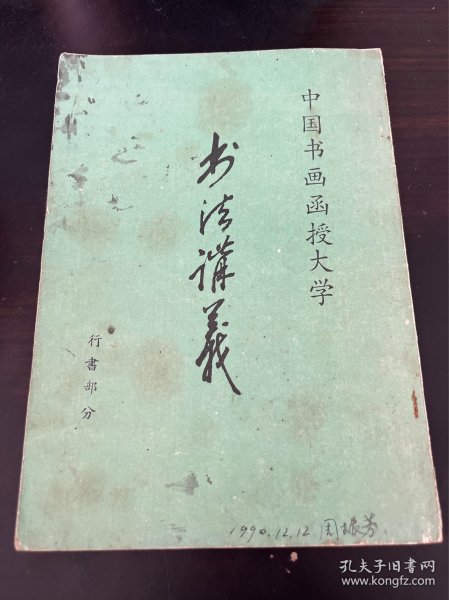 中国书画函授大学
书法講義
行書部分
1990.12.12 周振芳
孔夫子旧书网
www.kongfz.com